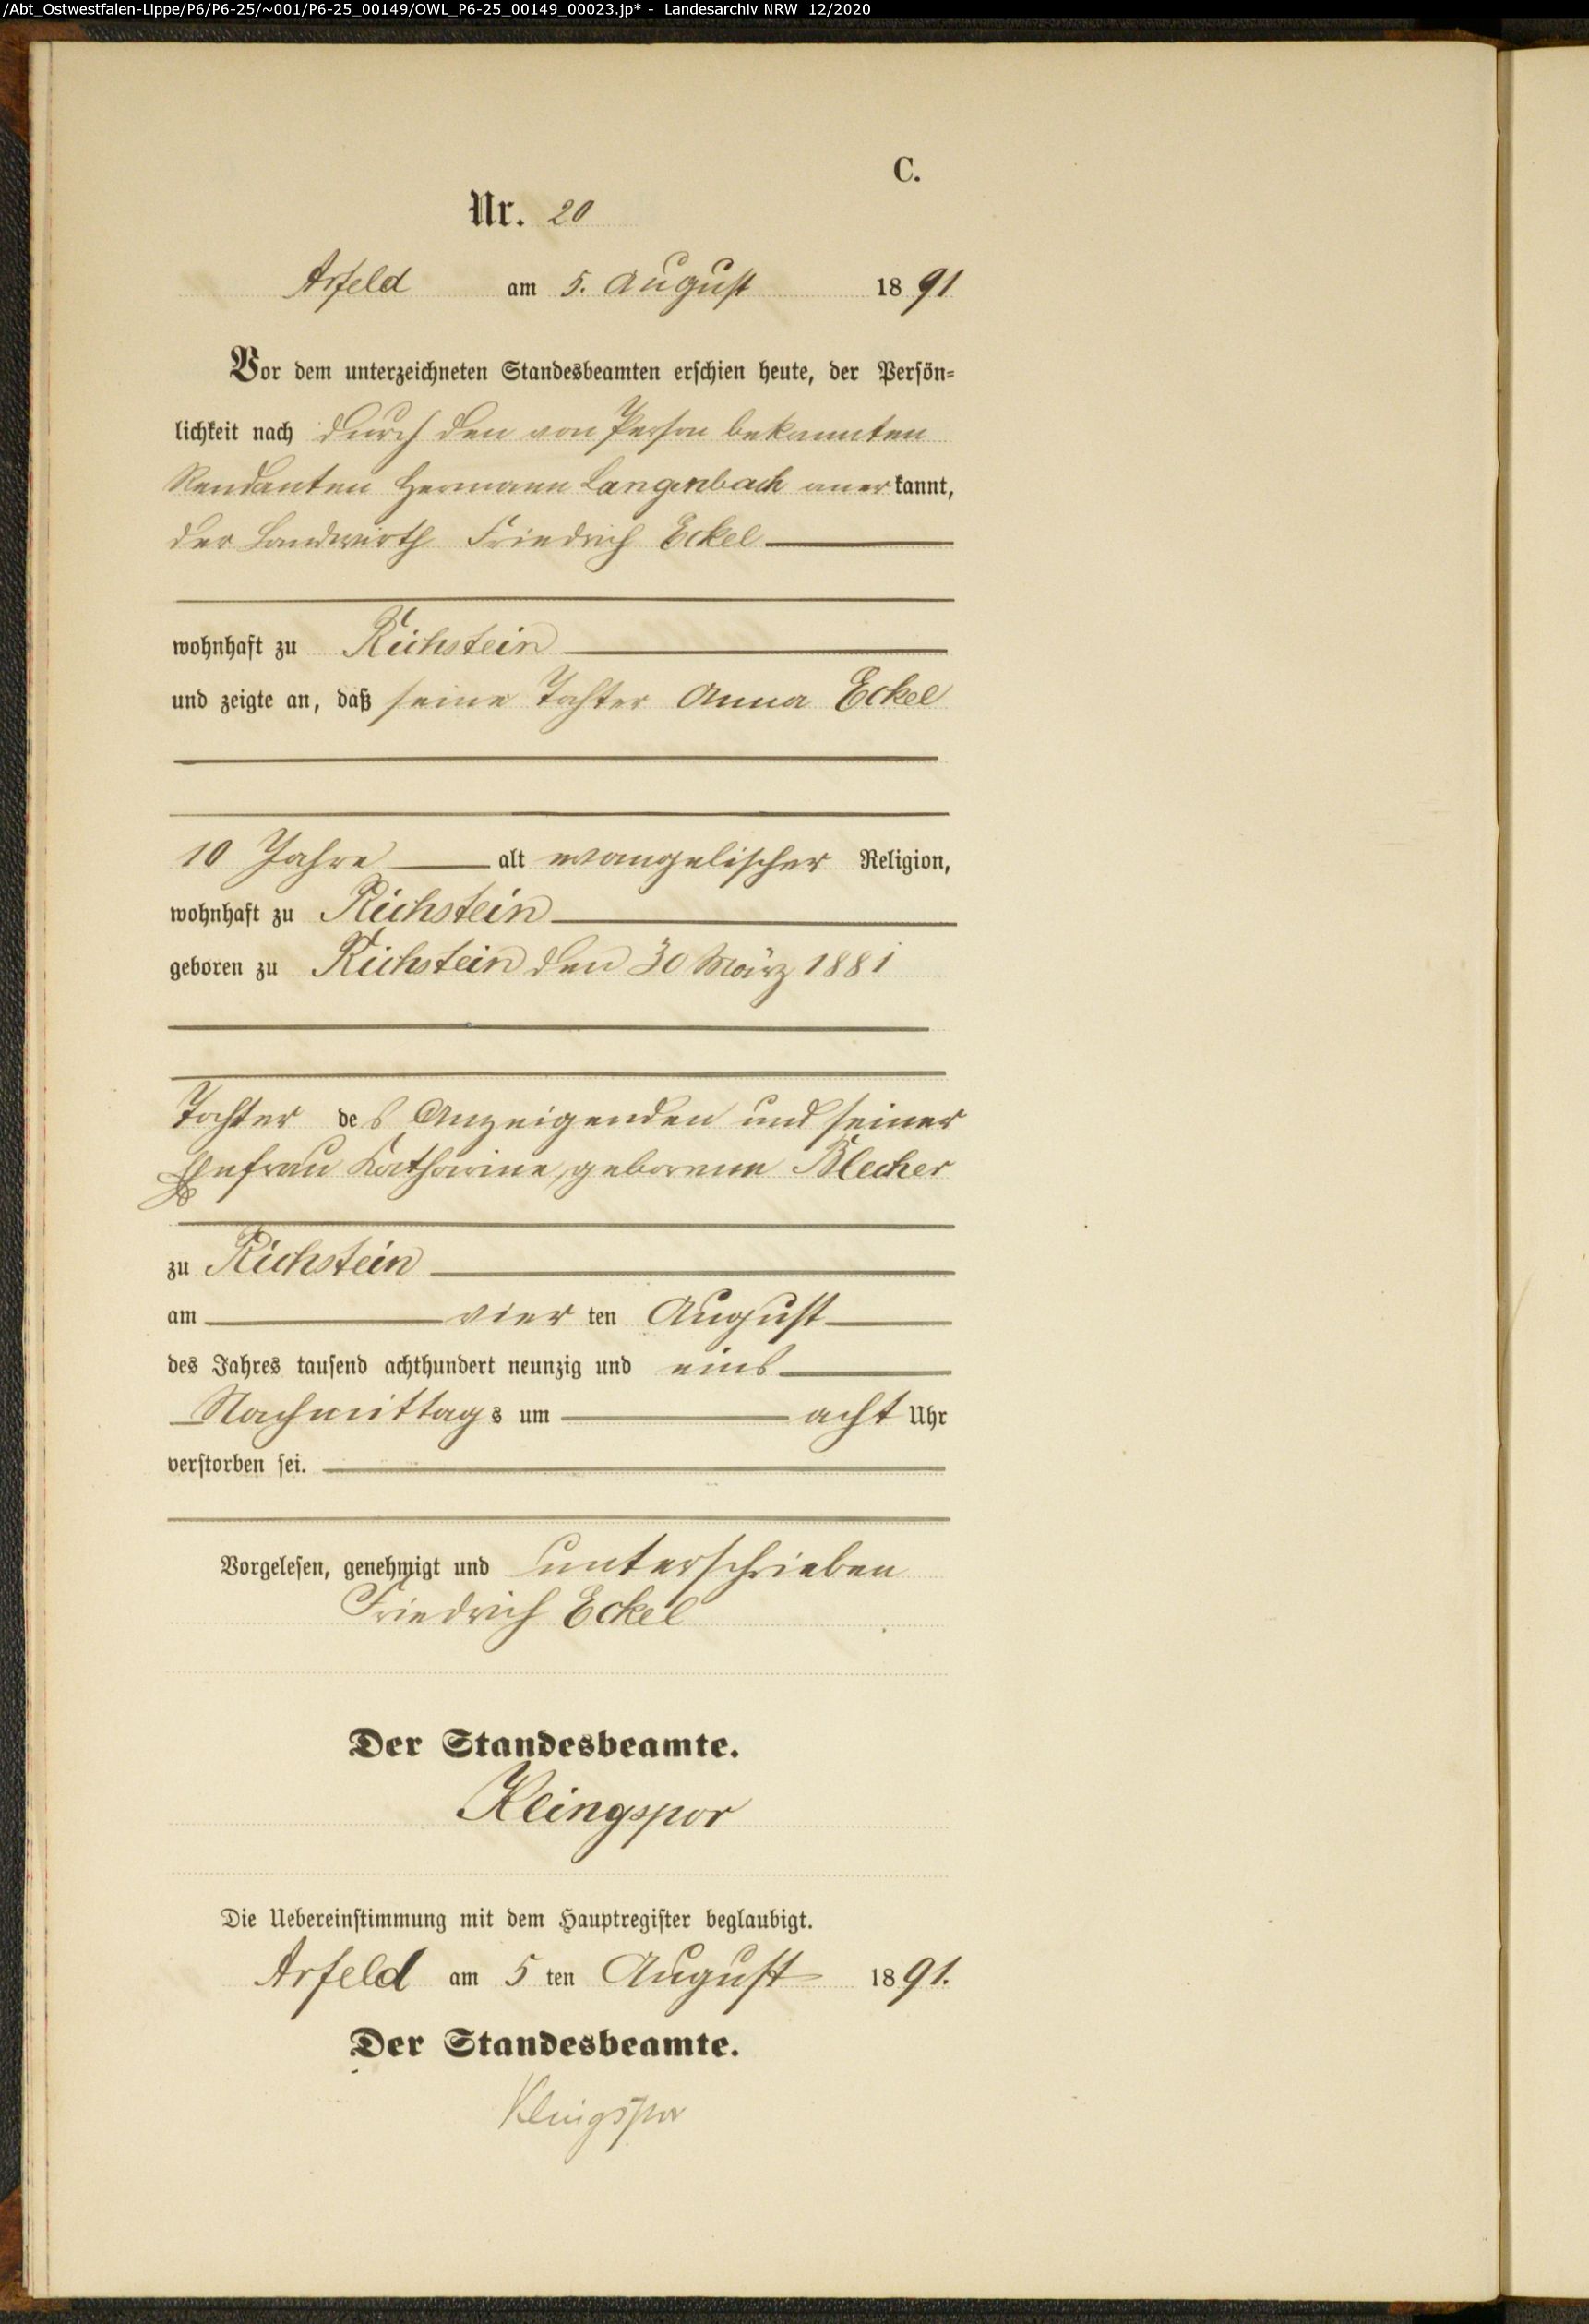 /Abt_Ostwestfalen-Lippe/P6/P6-25/~001/P6-25_00149/OWL_P6-25_00149_00023.jp* - Landesarchiv NRW 12/2020
C.
Nr. 20
Arfeld am 5. August 1891
Vor dem unterzeichneten Standesbeamten erschien heute, der Persön-
lichkeit nach durch den von Person bekannten
Rendanten Hermann Langenbach anerkannt,
der Landwirth Friedrich Eckel
wohnhaft zu Richstein
und zeigte an, daß seine Tochter Anna Eckel
10 Jahre alt evangelischer Religion,
wohnhaft zu Richstein
geboren zu Richstein den 30 März 1881
Tochter des Anzeigenden und seiner
Ehefrau Katharine, geborenen Blecher
zu Richstein
am vierten August
des Jahres tausend achthundert neunzig und eins
Nachmittags um acht Uhr
verstorben sei.
Vorgelesen, genehmigt und unterschrieben
Friedrich Eckel
Der Standesbeamte.
Klingspor
Die Uebereinstimmung mit dem Hauptregister beglaubigt.
Arfeld am 5ten August 1891.
Der Standesbeamte.
Klingspor